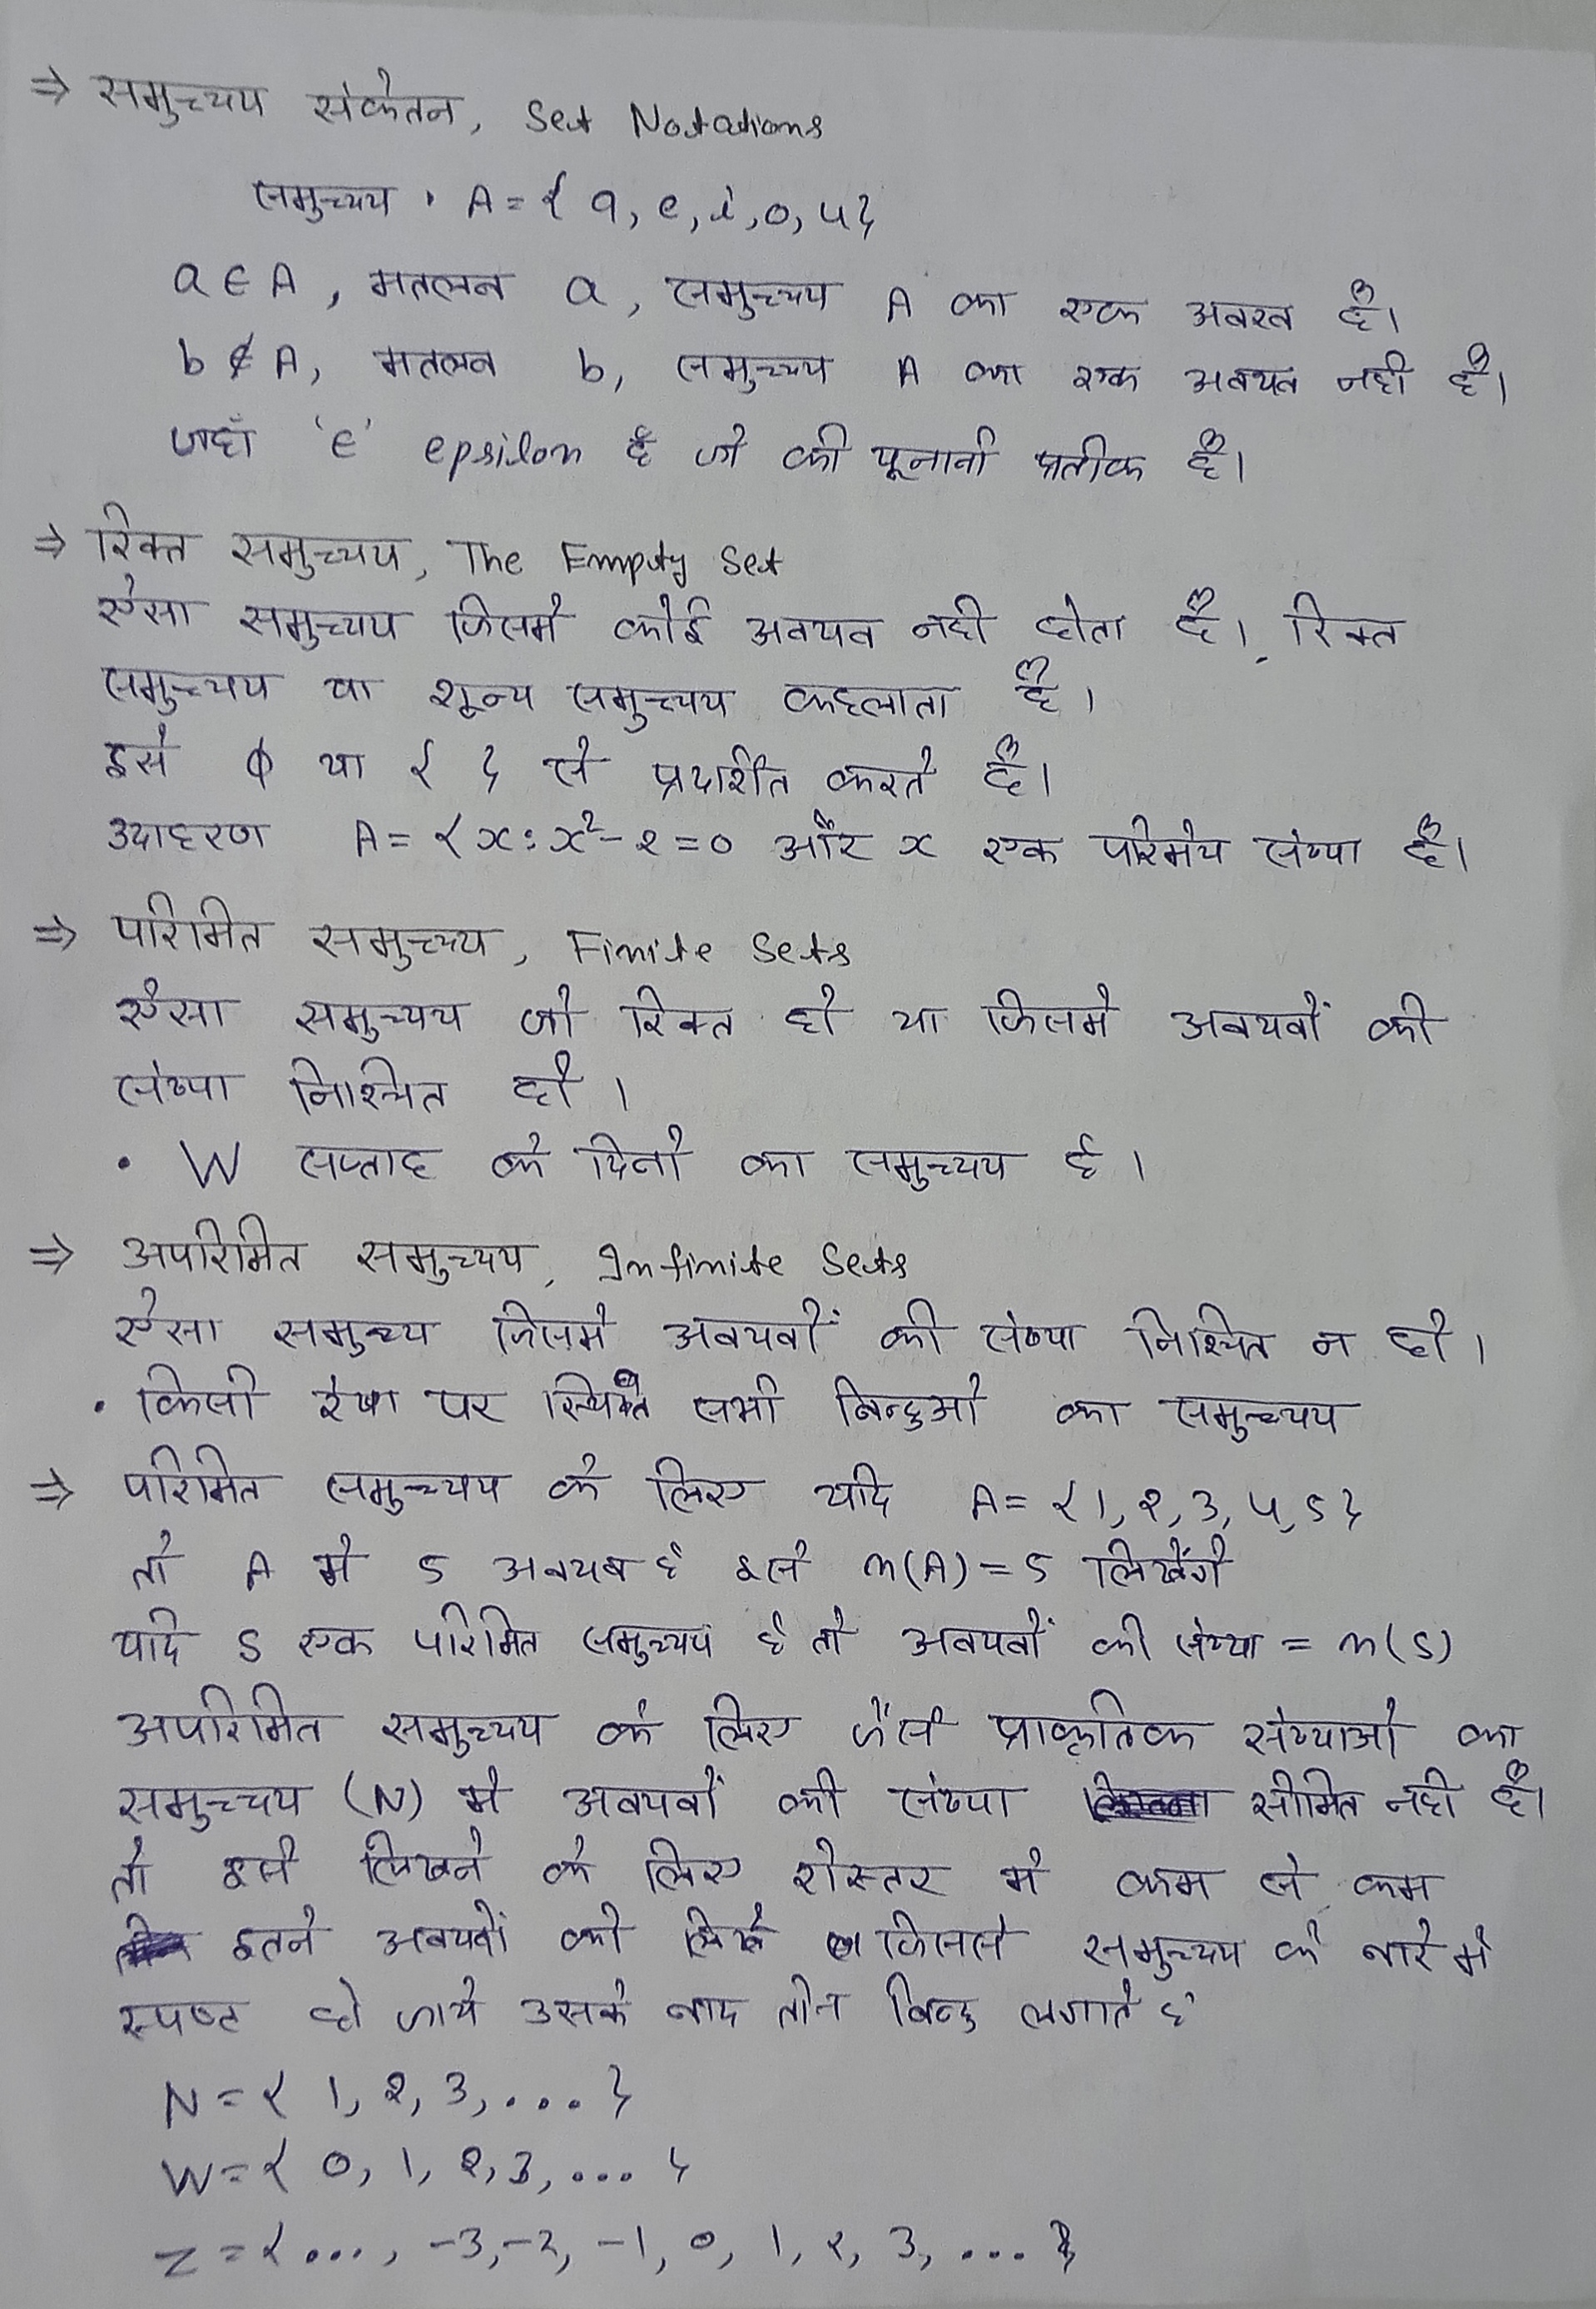 ⇒ समुच्चय संकेतन, Set Notations
समुच्चय · A = { a, e, i, o, u}
a ∈ A, मतलब a, समुच्चय A का एक अवयव है।
b ∉ A, मतलब b, समुच्चय A का एक अवयव नही है।
जहाँ '∈' epsilon है जो की यूनानी प्रतीक है।
⇒ रिक्त समुच्चय, The Empty Set
ऐसा समुच्चय जिसमे कोई अवयव नही होता है। रिक्त
समुच्चय या शून्य समुच्चय कहलाता है।
इसे ϕ या { } से प्रदर्शीत करते है।
उदाहरण A = { x : x² - 2 = 0 और x एक परिमेय संख्या है।
⇒ परिमित समुच्च्य, Finite Sets
ऐसा समुच्चय जो रिक्त हो या जिसमे अवयवों की
संख्या निश्चित हो।
• W सप्ताह के दिनो का समुच्चय है।
⇒ अपरिमित समुच्चय, Infinite Sets
ऐसा समुच्च्य जिसमे अवयवों की संख्या निश्चित न हो।
• किसी रेखा पर स्थित सभी बिन्दुओ का समुच्चय
⇒ परिमित समुच्चय के लिए यदि A = {1, 2, 3, 4, 5}
तो A मे 5 अवयव है इसे n(A) = 5 लिखेंगे
यदि S एक परिमित समुच्चय है तो अवयवों की संख्या = n(S)
अपरिमित समुच्चय के लिए जैसे प्राकृतिक संख्याओ का
समुच्चय (N) मे अवयवों की संख्या सीमित नही है।
तो इसे लिखने के लिए रोस्टर मे कम से कम
इतने अवयवों को लिखे जिससे समुच्चय के बारे मे
स्पष्ट हो जाये उसके बाद तीन बिन्दु लगाते है
N = { 1, 2, 3, ... }
W = { 0, 1, 2, 3, ... }
Z = { ..., -3, -2, -1, 0, 1, 2, 3, ... }